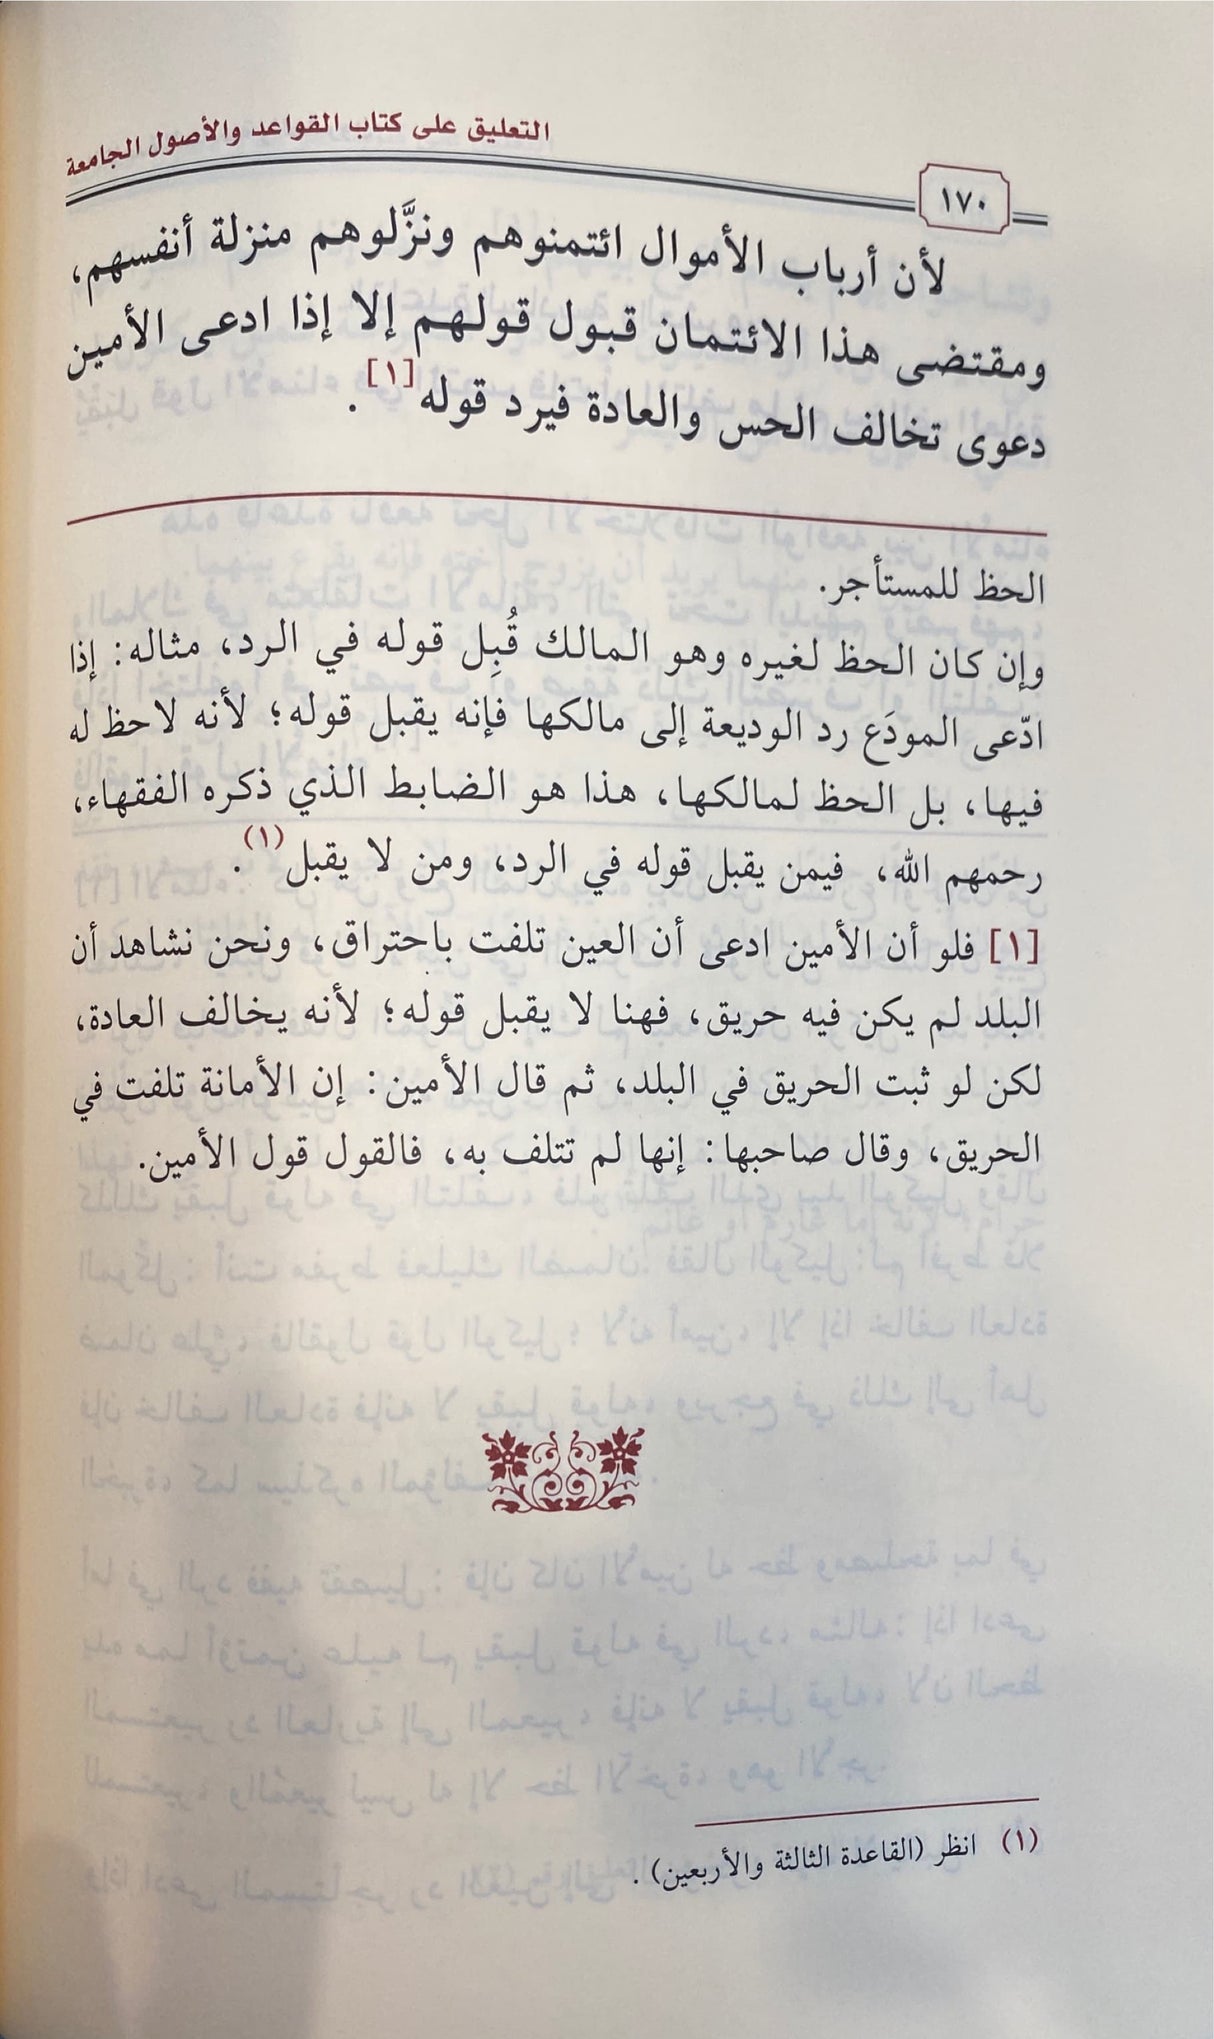 التعليق على كتاب القواعد والأصول الجامعة
١٧٠
لأن أرباب الأموال ائتمنوهم ونزَّلوهم منزلة أنفسهم،
ومقتضى هذا الائتمان قبول قولهم إلا إذا ادعى الأمين
دعوى تخالف الحس والعادة فيرد قوله[١].
الحظ للمستأجر.
وإن كان الحظ لغيره وهو المالك قُبِل قوله في الرد، مثاله: إذا
ادّعى المودَع رد الوديعة إلى مالكها فإنه يقبل قوله؛ لأنه لاحظ له
فيها، بل الحظ لمالكها، هذا هو الضابط الذي ذكره الفقهاء،
رحمهم الله، فيمن يقبل قوله في الرد، ومن لا يقبل(١).
[١] فلو أن الأمين ادعى أن العين تلفت باحتراق، ونحن نشاهد أن
البلد لم يكن فيه حريق، فهنا لا يقبل قوله؛ لأنه يخالف العادة،
لكن لو ثبت الحريق في البلد، ثم قال الأمين: إن الأمانة تلفت في
الحريق، وقال صاحبها: إنها لم تتلف به، فالقول قول الأمين.
(١) انظر (القاعدة الثالثة والأربعين).